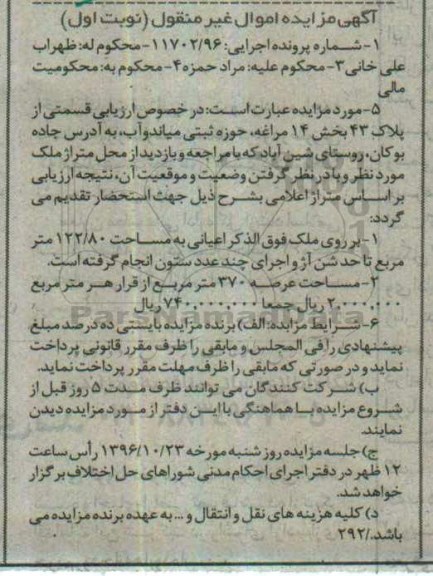 آگهی مزایده اموال غیر منقول (نوبت اول)
۱-شماره پرونده اجرایی: ۱۱۷۰۲/۹۶-محکوم له: ظهراب
علی خانی ۳-محکوم علیه: مراد حمزه ۴-محکوم به: محکومیت
مالی
۵-مورد مزایده عبارت است: در خصوص ارزیابی قسمتی از
پلاک ۴۳ بخش ۱۴ مراغه، حوزه ثبتی میاندوآب، به آدرس جاده
بوکان، روستای شین آباد که با مراجعه و بازدید از محل متراژ ملک
مورد نظر و با در نظر گرفتن وضعیت و موقعیت آن، نتیجه ارزیابی
بر اساس متراژ اعلامی بشرح ذیل جهت استحضار تقدیم می
گردد:
۱-بر روی ملک فوق الذکر اعیانی به مساحت ۱۲۲/۸۰ متر
مربع تا حد شن آژ و اجرای چند عدد ستون انجام گرفته است.
۲-مساحت عرصه ۳۷۰ متر مربع از قرار هر متر مربع
۲,۰۰۰,۰۰۰ ریال جمعا ۷۴۰,۰۰۰,۰۰۰ ریال
۶-شرایط مزایده: الف) برنده مزایده بایستی ده درصد مبلغ
پیشنهادی را فی المجلس و مابقی را ظرف مقرر قانونی پرداخت
نماید و در صورتی که مابقی را ظرف مهلت مقرر پرداخت نماید.
ب) شرکت کنندگان می توانند ظرف مدت ۵ روز قبل از
شروع مزایده با هماهنگی با این دفتر از مورد مزایده دیدن
نمایند.
ج) جلسه مزایده روز شنبه مورخه ۱۳۹۶/۱۰/۲۳ رأس ساعت
۱۲ ظهر در دفتر اجرای احکام مدنی شوراهای حل اختلاف برگزار
خواهد شد.
د) کلیه هزینه های نقل و انتقال و ... به عهده برنده مزایده می
باشد./۲۹۲
ParsNamadData